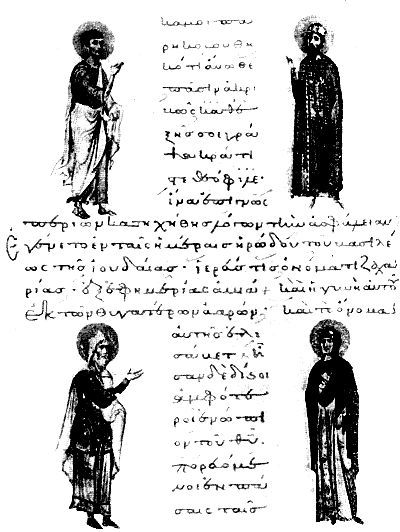 καμοὶ πα
ρηκολουθη
κότι ἄνωθε
πᾶσιν ἀκρι
βῶς καθε
ξῆς σοι γρά
ψαι κράτι
στε θεόφιλε·
ἵνα ἐπιγνῶς
περὶ ὧν κατηχήθης λόγων τὴν ἀσφάλειαν
Ἐγένετο ἐν ταῖς ἡμέραις ἡρώδου τοῦ βασιλέ
ως τῆς ἰουδαίας· ἱερεύς τις ὀνόματι ζαχα
ρίας· ἐξ ἐφημερίας ἀβιά· καὶ ἡ γυνὴ αὐτοῦ
ἐκ τῶν θυγατέρων ἀαρών· καὶ τὸ ὄνομα
αὐτῆς ἐλι
σάβετ· ἦ
σαν δὲ δίκαιοι
ἀμφότε
ροι ἐνώπι
ον τοῦ θυ·
πορευόμε
νοι ἐν πά
σαις ταῖς